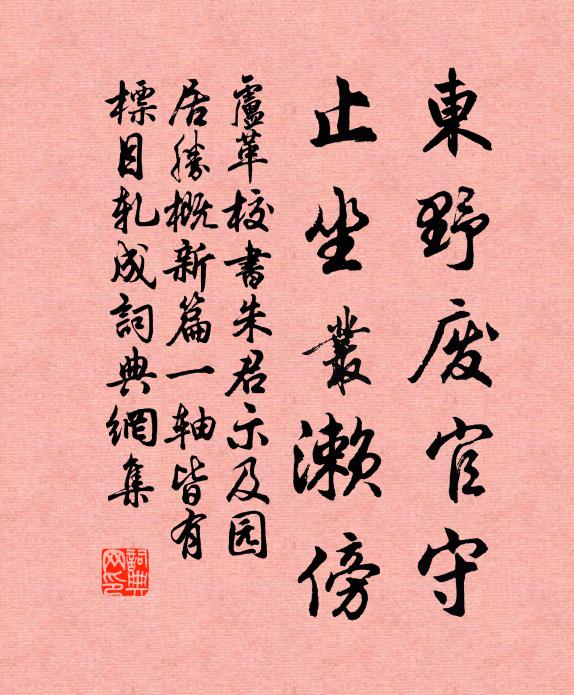 東野廢官守
止坐叢瀨傍
盧革校書朱君示及园
居勝概新篇一軸皆有
標目軋成詞典網集
詞典
网印